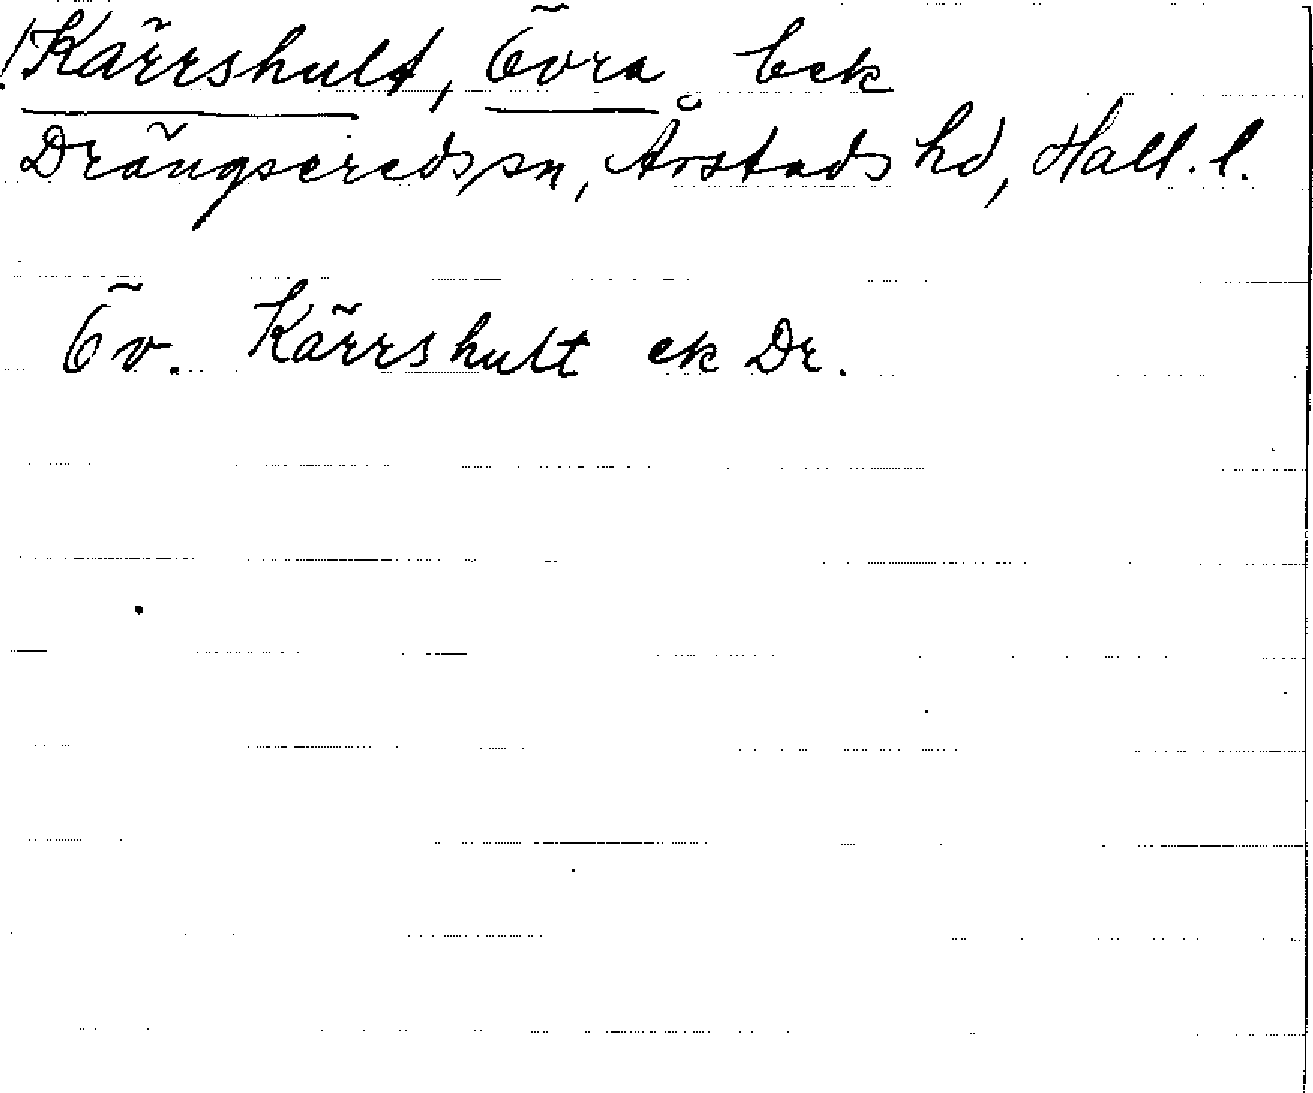 !Kärrshult, Övra bek
Drängsereds sn, Årstads hd, Hall. l.
Öv. Kärrshult ek Dr.